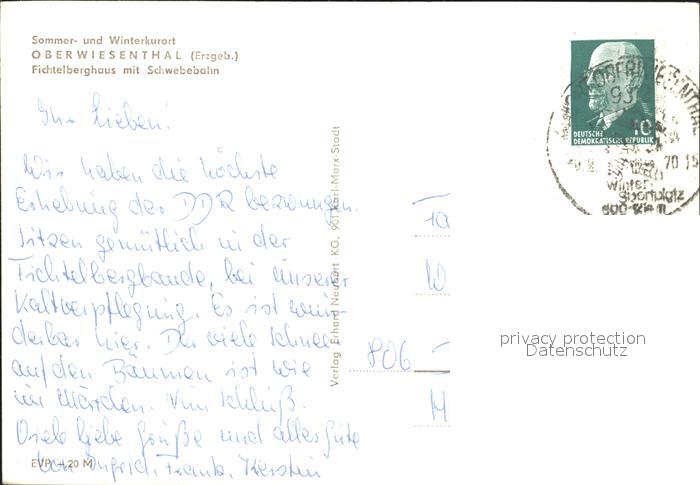 Sommer- und Winterkurort
OBERWIESENTHAL (Erzgeb.)
Fichtelberghaus mit Schwebebahn
Ihr Lieben!
Wir haben die höchste
Erhebung der DDR bezwungen.
Sitzen gemütlich in der
Fichtelbergbaude, bei unserer
Kaltverpflegung. Es ist wun-
derbar hier. Der viele Schnee
auf den Bäumen ist wie
im Märchen. Nun Schluß.
Viele liebe Grüße und alles Gute
von Ingrid, Frank, Kerstin
EVP -,20 M
Verlag Erhard Neubert KG, 901 Karl-Marx-Stadt
DEUTSCHE
DEMOKRATISCHE REPUBLIK
10
OBERWIESENTHAL
93
70
Winter
Sportplatz
Fa
W
806
M
privacy protection
Datenschutz